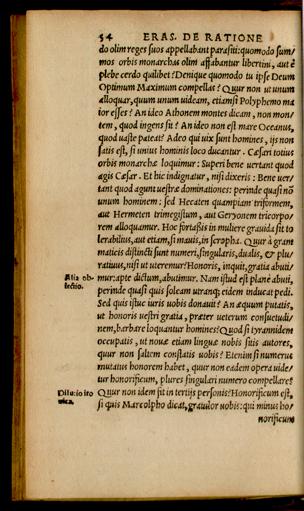 54 ERAS. DE RATIONE
do olim reges suos appellabant parasiti: quomodo sum/
mos orbis monarchas olim affabantur libertini, aut è
plebe cerdo quilibet? Denique quomodo tu ipse Deum
Optimum Maximum compellas? Quur non ut unum
alloquar, quum unum uideam, etiamsi Polyphemo ma
ior esses? An ideo Athonem montes dicam, non mon/
tem, quod ingens sit? An ideo non est mare Oceanus,
quod uaste pateat? Adeo qui uix sunt homines, ijs non
satis est, si unius hominis loco ducantur. Cæsari totius
orbis monarchæ loquimur: Superi bene uertant quod
agis Cæsar. Et hic indignatur, nisi dixeris: Bene uer/
tant quod agunt uestræ dominationes: perinde quasi nō
unum hominem: sed Hecaten quampiam triformem,
aut Hermeten trimegistum, aut Geryonem tricorpo/
rem alloquamur. Hoc fortassis in muliere grauida sit to
lerabilius, aut etiam, si mauis, in scropha. Quur à gram
maticis distincti sunt numeri, singularis, dualis, & plu/
ratiuus, nisi ut uteremur? Honoris, inquit, gratia abuti/
Alia ob- mur: apte dictum, abutimur. Nam istud est planè abuti,
iectio. perinde quasi quis soleam utranq; eidem inducat pedi.
Sed quis istuc iuris uobis donauit? An æquum putatis,
ut honoris uestri gratia, præter ueterum consuetudi/
nem, barbare loquantur homines? Quod si tyrannidem
occupatis, ut nouæ etiam linguæ nobis sitis autores,
quur non saltem constatis uobis? Etenim si numerus
mutatus honorem habet, quur non eadem opera uide/
tur honorificum, plures singulari numero compellare?
Dilutio iro Quur non idem fit in tertijs personis? Honorificum est,
nica. si quis Marcolpho dicat, grauior uobis: qui minus ho/
norificum